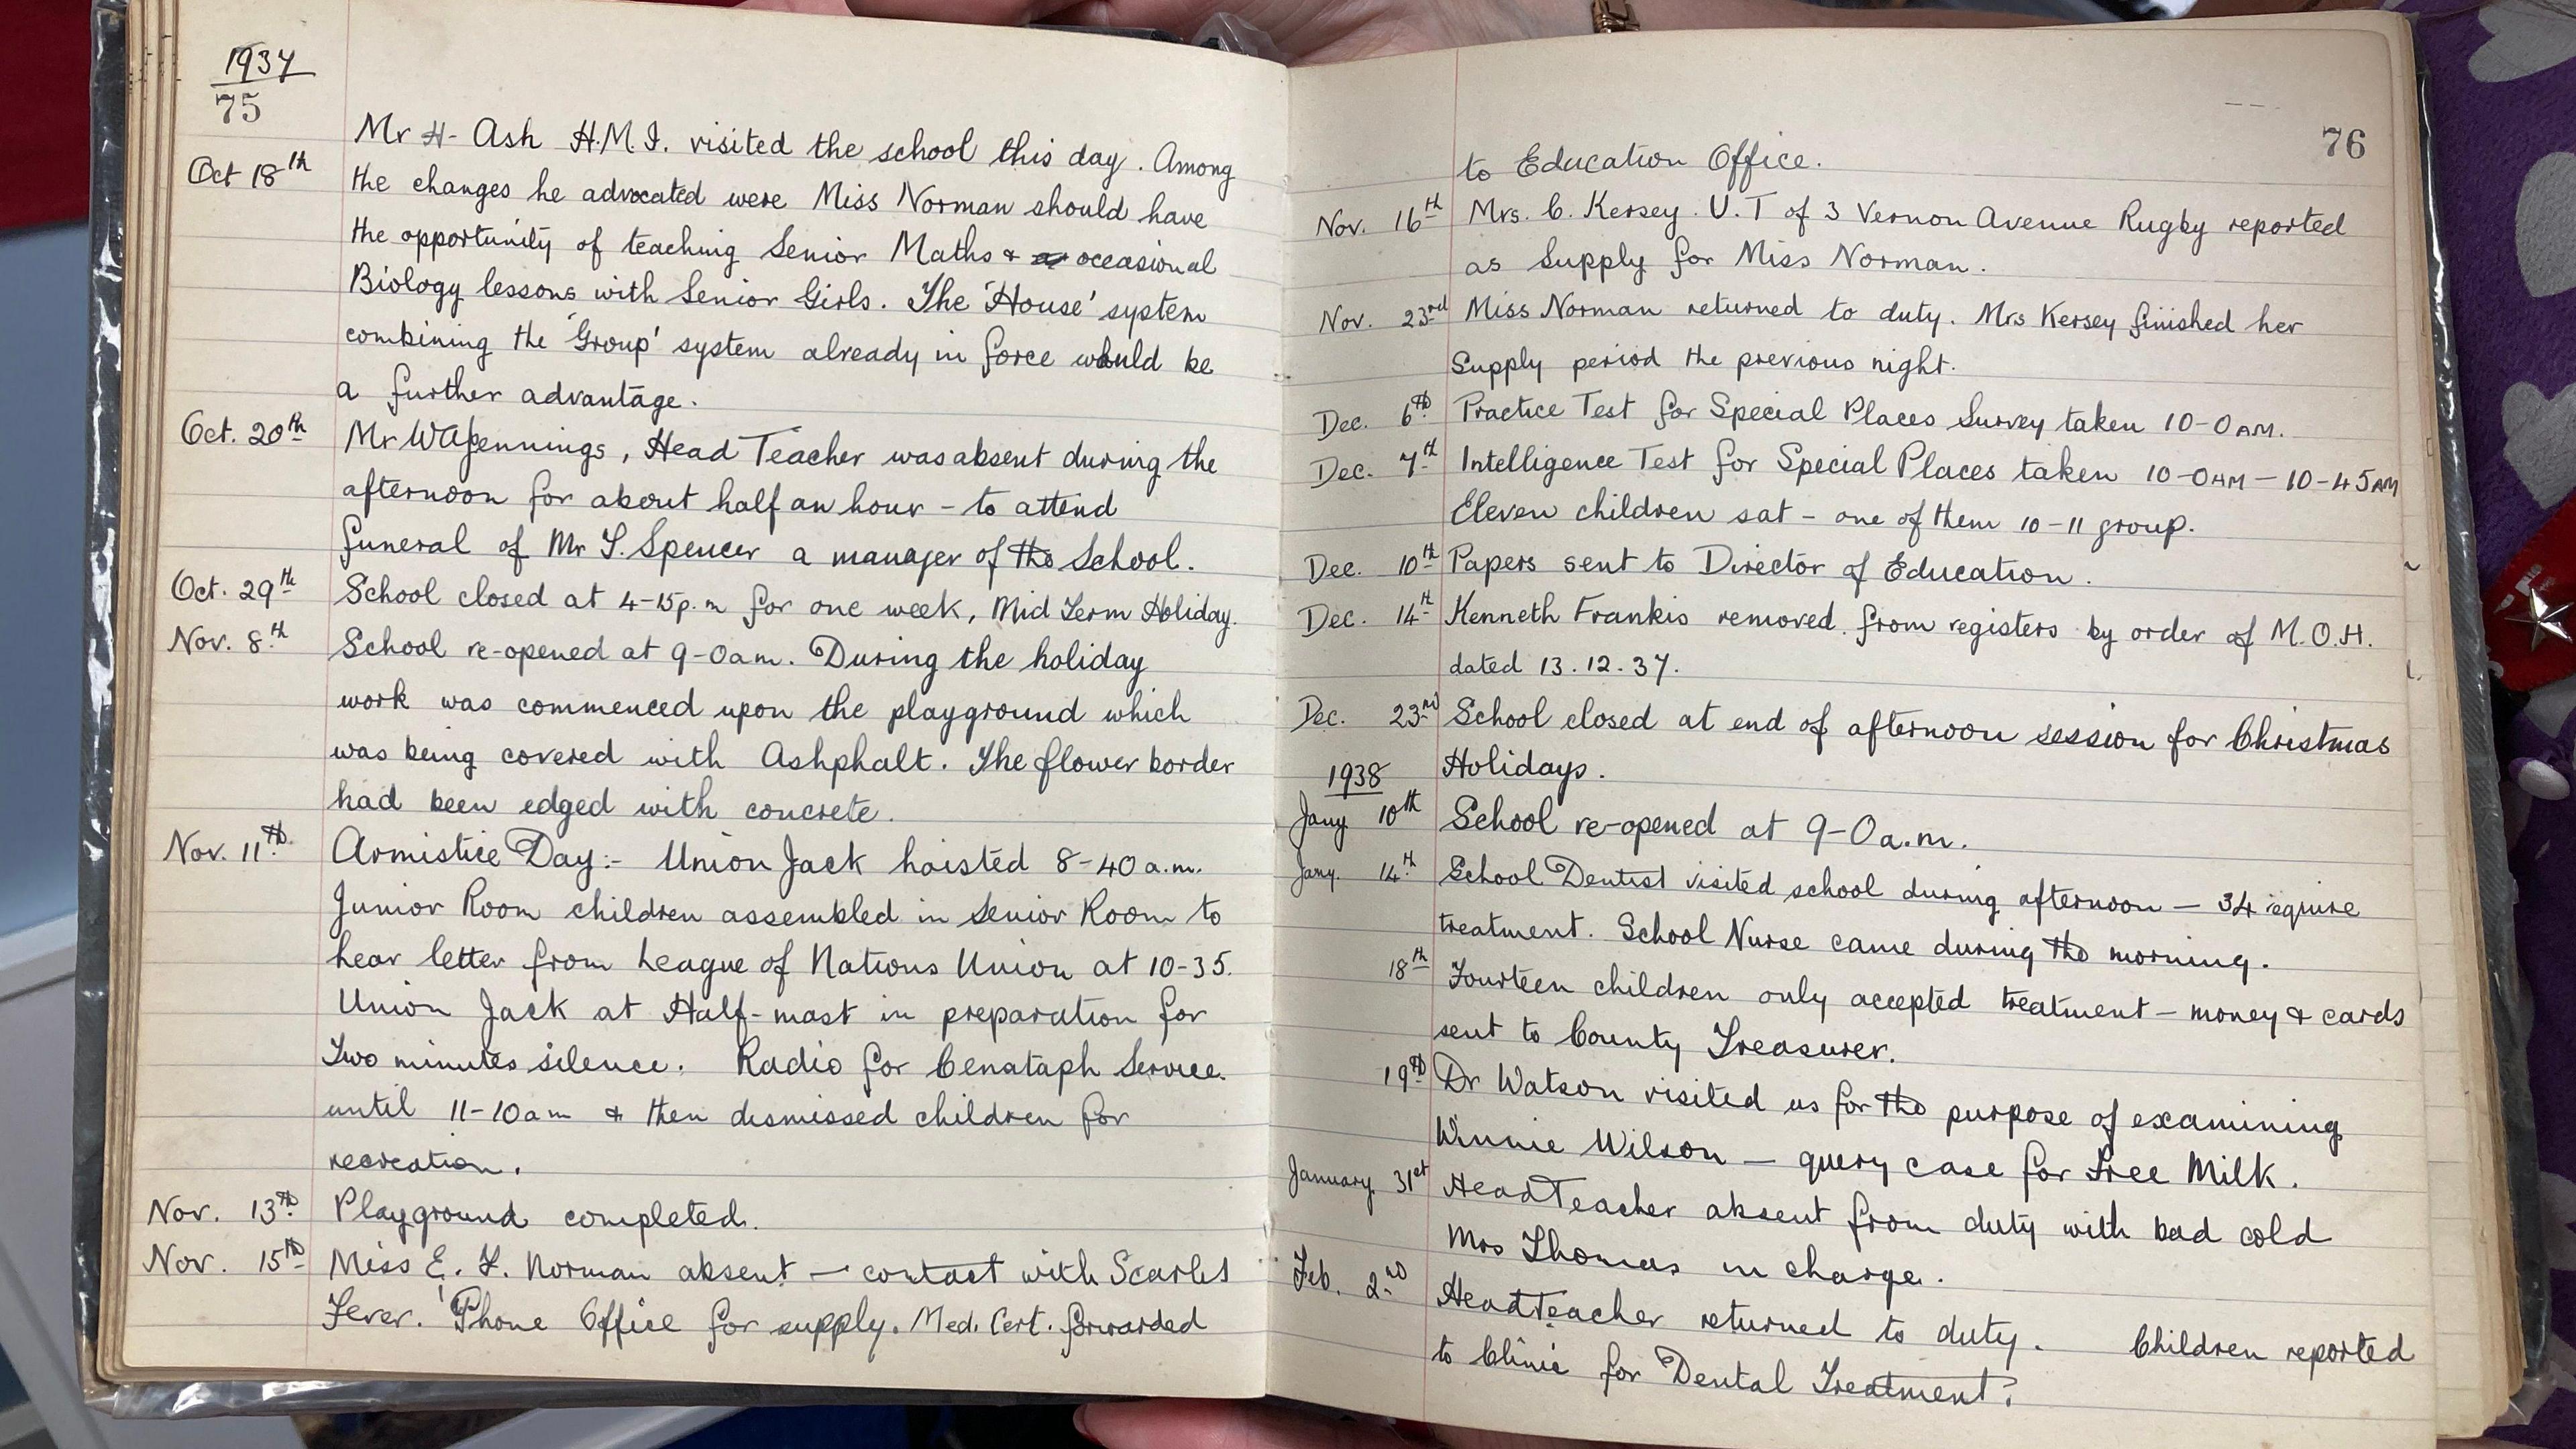 1937
75
Oct 18th Mr H- Ash H.M.I. visited the school this day. Among
the changes he advocated were Miss Norman should have
the opportunity of teaching Senior Maths & occasional
Biology lessons with Senior Girls. The 'House' system
combining the 'Group' system already in force would be
a further advantage.
Oct. 20th Mr W A Jennings, Head Teacher was absent during the
afternoon for about half an hour - to attend
funeral of Mr T. Spencer a manager of the School.
Oct. 29th School closed at 4-15p.m for one week, Mid Term Holiday.
Nov. 8th School re-opened at 9-0am. During the holiday
work was commenced upon the playground which
was being covered with Ashphalt. The flower border
had been edged with concrete.
Nov. 11th Armistice Day:- Union Jack hoisted 8-40 a.m.
Junior Room children assembled in Senior Room to
hear letter from League of Nations Union at 10-35.
Union Jack at Half-mast in preparation for
Two minutes silence. Radio for Cenataph Service
until 11-10am & then dismissed children for
recreation.
Nov. 13th Playground completed.
Nov. 15th Miss E. F. Norman absent - contact with Scarlet
Fever. 'Phone Office for supply. Med. Cert. forwarded
76
to Education Office.
Nov. 16th Mrs. C. Kersey. U.T of 3 Vernon Avenue Rugby reported
as Supply for Miss Norman.
Nov. 23rd Miss Norman returned to duty. Mrs Kersey finished her
Supply period the previous night.
Dec. 6th Practice Test for Special Places Survey taken 10-0 AM.
Dec. 7th Intelligence Test for Special Places taken 10-0AM - 10-45AM
Eleven children sat - one of them 10-11 group.
Dec. 10th Papers sent to Director of Education.
Dec. 14th Kenneth Frankis removed from registers by order of M.O.H.
dated 13.12.37.
Dec. 23rd School closed at end of afternoon session for Christmas
Holidays.
1938
Jany 10th School re-opened at 9-0 a.m.
Jany. 14th School Dentist visited school during afternoon - 34 require
treatment. School Nurse came during the morning.
18th Fourteen children only accepted treatment - money & cards
sent to County Treasurer.
19th Dr Watson visited us for the purpose of examining
Winnie Wilson - query case for Free Milk.
January 31st Head Teacher absent from duty with bad cold
Mrs Thomas in charge.
Feb. 2nd Head Teacher returned to duty. Children reported
to Clinic for Dental Treatment.